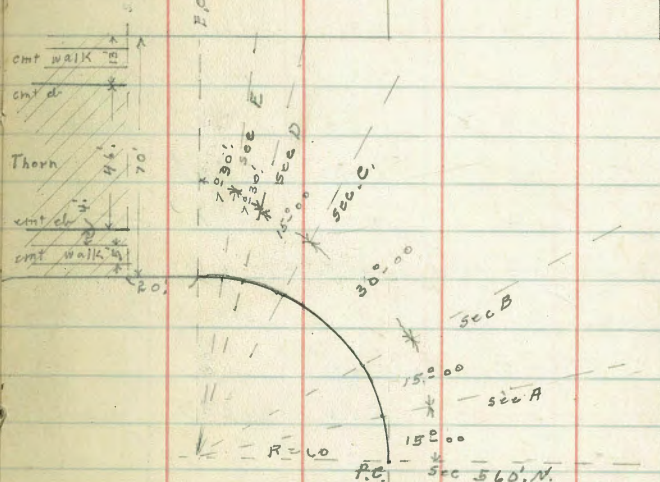 cmt walk 13'
cmt cb
Thorn
46'
70'
cmt cb 4'
cmt walk 5'
20'
7°-30'
Sec E
7°-30'
Sec D
15°-00
Sec. C.
30°-00
Sec B
15°-00
Sec A
15°-00
R = 60
P.C.
Sec 560'. N.